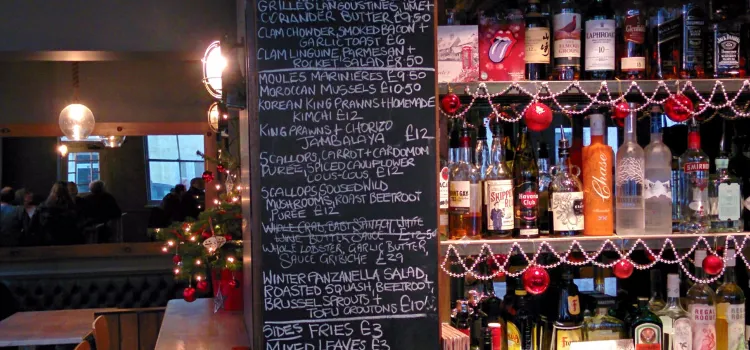 GRILLED LANGOUSTINES, LIME+
CORIANDER BUTTER £9.50
CLAM CHOWDER, SMOKED BACON +
GARLIC TOAST £6
CLAM LINGUINE PARMESAN +
ROCKET SALAD £8.50
MOULES MARINIERES £9.50
MOROCCAN MUSSELS £10.50
KOREAN KING PRAWNS + HOMEMADE
KIMCHI £12
KING PRAWNS + CHORIZO
JAMBALAYA £12
SCALLOPS, CARROT + CARDOMOM
PURÉE, SPICED CAULIFLOWER
COUS-COUS £12
SCALLOPS, SOUSED WILD
MUSHROOMS, ROAST BEETROOT
PURÉE £12
WHOLE CRAB, BABY SPINACH, WHITE
WINE BUTTER SAUCE £12.50
WHOLE LOBSTER, GARLIC BUTTER,
SAUCE GRIBICHE £29
WINTER PANZANELLA SALAD,
ROASTED SQUASH, BEETROOT,
BRUSSEL SPROUTS +
TOFU CROUTONS £10
SIDES FRIES £3
MIXED LEAVES £3
LAPHROAIG
10
JACK DANIEL'S
Chase
SMIRNOFF
Havana Club